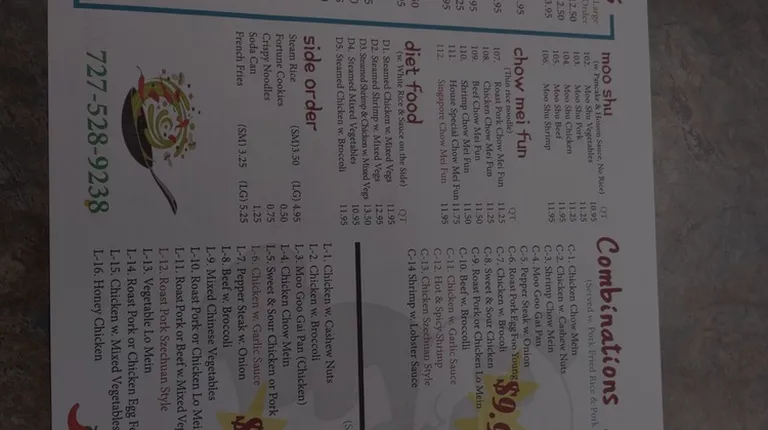 Large
Order
12.50
2.50
3.95
moo shu
(w. Pancake & Hoisin Sauce, No Rice) QT
102. Moo Shu Vegetables 10.95
103. Moo Shu Pork 11.25
104. Moo Shu Chicken 11.25
105. Moo Shu Beef 11.95
106. Moo Shu Shrimp 11.95
chow mei fun
(Thin rice noodle) QT
107. Roast Pork Chow Mei Fun 11.25
108. Chicken Chow Mei Fun 11.25
109. Beef Chow Mei Fun 11.50
110. Shrimp Chow Mei Fun 11.50
111. House Special Chow Mei Fun 11.75
112. Singapore Chow Mei Fun 11.95
diet food
(w. White Rice & Sauce on the Side) QT
D1. Steamed Chicken w. Mixed Vegs 11.95
D2. Steamed Shrimp w. Mixed Vegs 12.95
D3. Steamed Shrimp & Chicken w. Mixed Vegs 13.50
D4. Steamed Mixed Vegetables 10.95
D5. Steamed Chicken w. Broccoli 11.95
side order
Steam Rice (SM)3.50 (LG) 4.95
Fortune Cookies 0.50
Crispy Noodles 0.75
Soda Can 1.25
French Fries (SM) 3.25 (LG) 5.25
727-528-9238
Combinations
(Served w. Pork Fried Rice & Pork
C-1. Chicken Chow Mein
C-2. Chicken w. Cashew Nuts
C-3. Shrimp Chow Mein
C-4. Moo Goo Gai Pan
C-5. Pepper Steak w. Onion
C-6. Roast Pork Egg Foo Young
C-7. Chicken w. Broccoli
C-8. Sweet & Sour Chicken
C-9. Roast Pork or Chicken Lo Mein
C-10. Beef w. Broccoli
C-11. Chicken w. Garlic Sauce
C-12. Hot & Spicy Shrimp
C-13. Chicken Szechuan Style
C-14 Shrimp w. Lobster Sauce
$9.
L-1. Chicken w. Cashew Nuts
L-2. Chicken w. Broccoli
L-3. Moo Goo Gai Pan (Chicken)
L-4. Chicken Chow Mein
L-5. Sweet & Sour Chicken or Pork
L-6. Chicken w. Garlic Sauce
L-7. Pepper Steak w. Onion
L-8. Beef w. Broccoli
L-9. Mixed Chinese Vegetables
L-10. Roast Pork or Chicken Lo Mei
L-11. Roast Pork or Beef w. Mixed Ve
L-12. Roast Pork Szechuan Style
L-13. Vegetable Lo Mein
L-14. Roast Pork or Chicken Egg F
L-15. Chicken w. Mixed Vegetables
L-16. Honey Chicken